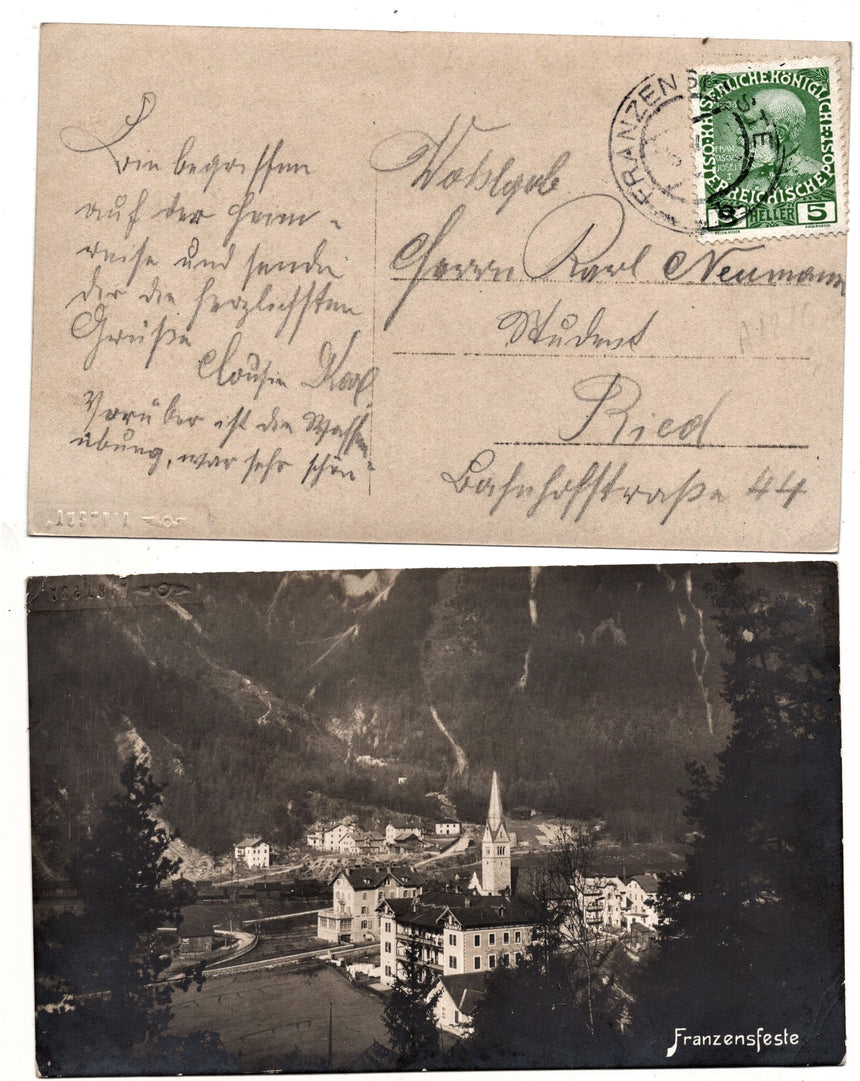 Bin begriffen
auf der Heim-
reise und sende
dir die herzlichsten
Grüße
Cousin Karl
Vorüber ist die Waffen-
übung, war sehr schön
Wohlgeb
Herrn Karl Neumann
Student
Ried
Bahnhofstraße 44
FRANZENSFESTE
KAISERLICHE KÖNIGLICHE
ÖSTERREICHISCHE POST
FRAN
CISCVS
JOSEF
I
1908
5 HELLER 5
Franzensfeste